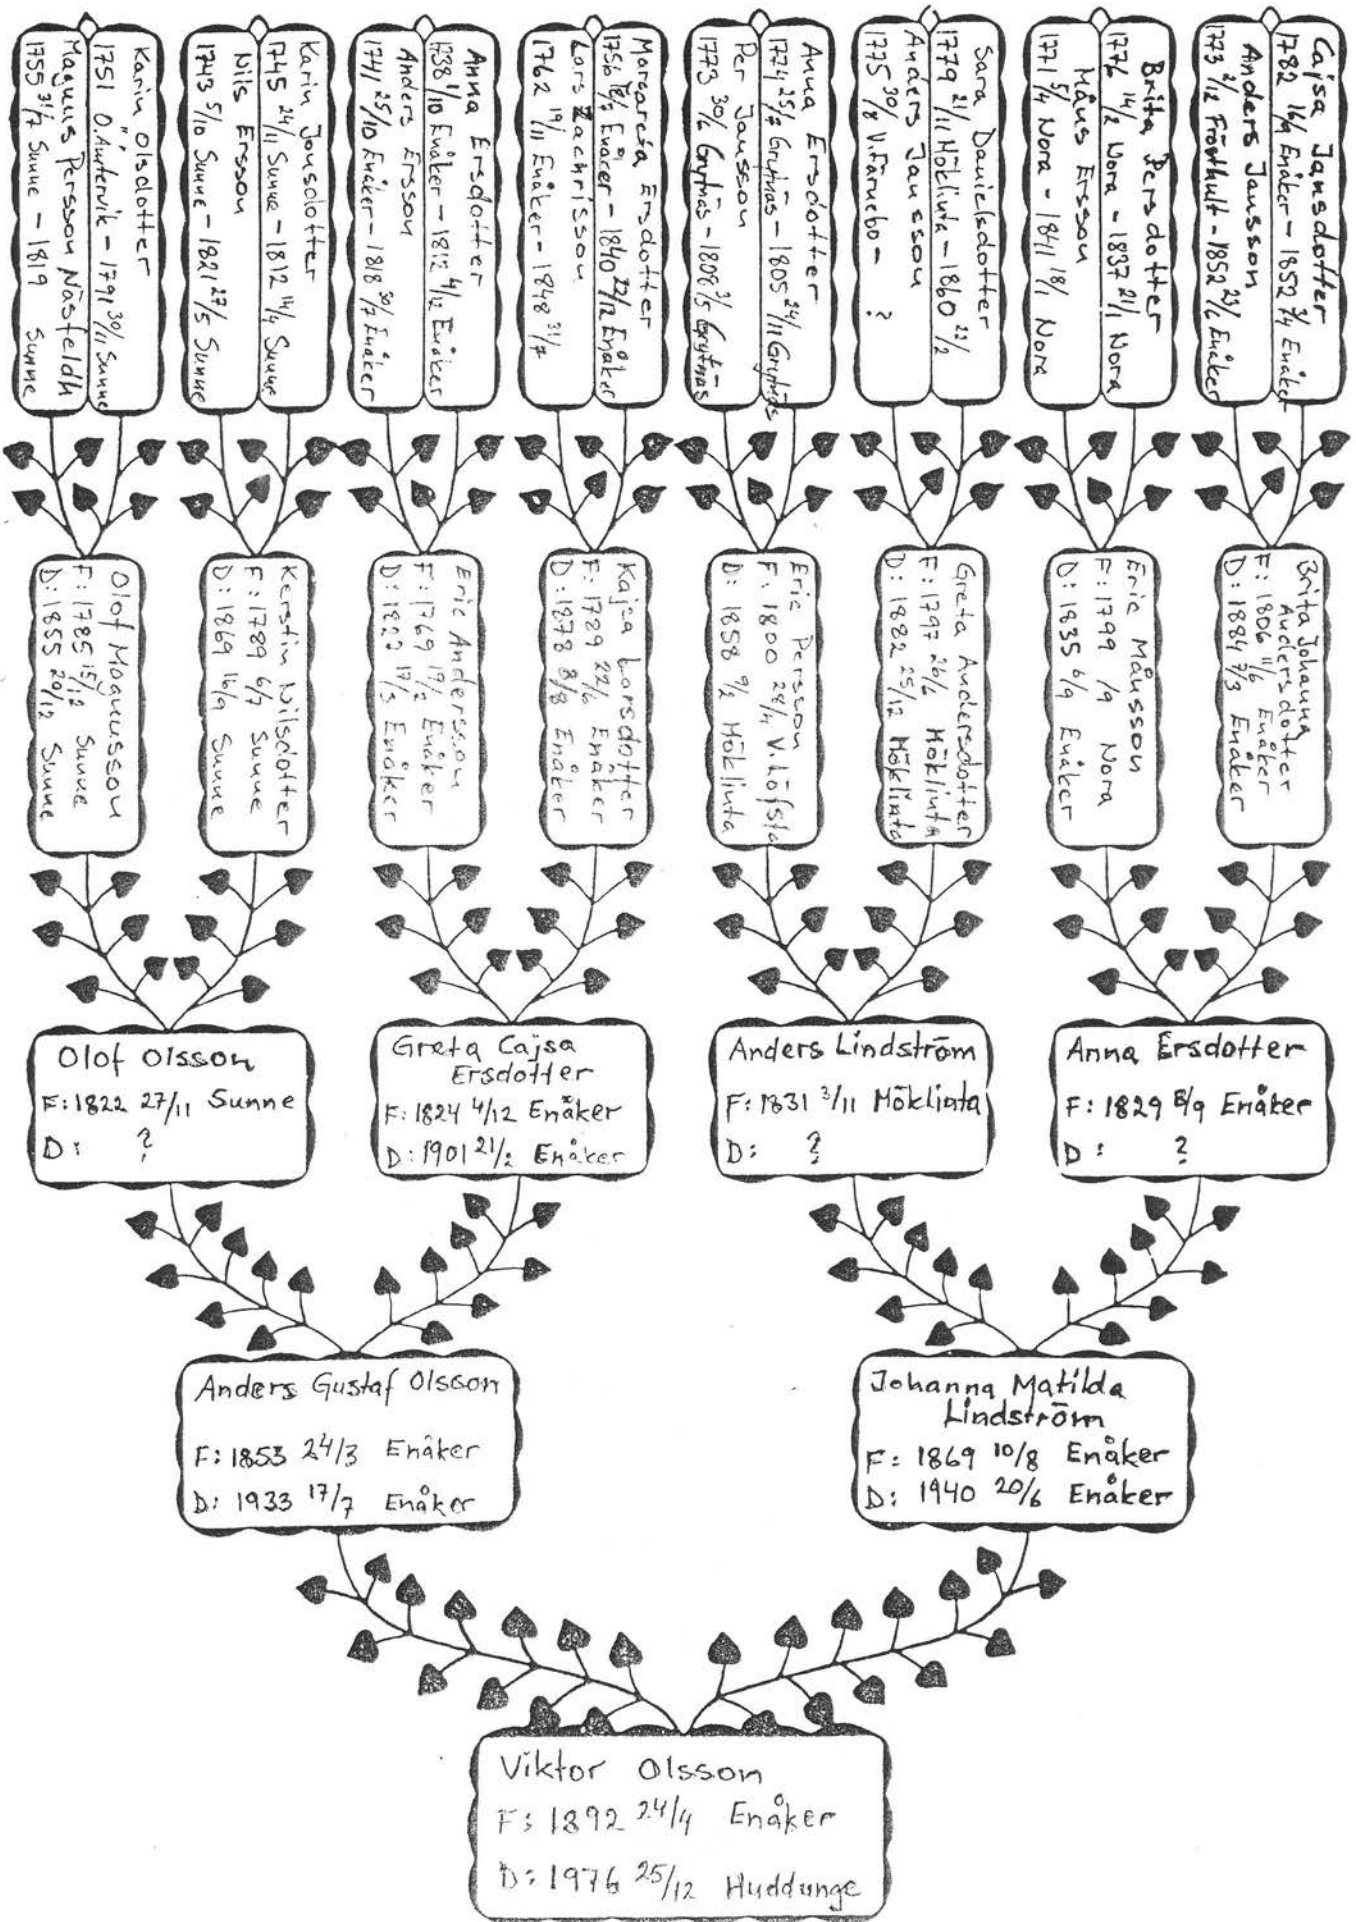 Karin Olsdotter
1751 Ö.Ämtervik - 1791 30/11 Sunne
Magnus Persson Näsfeldh
1755 31/7 Sunne - 1819 Sunne
Karin Jonsdotter
1745 24/11 Sunne - 1812 14/4 Sunne
Nils Ersson
1743 5/10 Sunne - 1821 27/5 Sunne
Anna Ersdotter
1738 1/10 Enåker - 1812 4/12 Enåker
Anders Ersson
1741 25/10 Enåker - 1818 30/7 Enåker
Margareta Ersdotter
1756 Enåker - 1840 27/12 Enåker
Lars Zachrisson
1762 19/11 Enåker - 1848 31/7
Anna Ersdotter
1774 25/7 Grytnäs - 1805 24/11 Grytnäs
Per Jansson
1773 30/6 Grytnäs - 1808 31/5 Grytnäs
Sara Danielsdotter
1779 21/11 Möklinta - 1860 22/2
Anders Jansson
1775 30/8 V.Färnebo - ?
Brita Persdotter
1776 14/2 Nora - 1837 21/1 Nora
Måns Ersson
1771 5/4 Nora - 1841 18/1 Nora
Cajsa Jansdotter
1782 16/9 Enåker - 1852 3/4 Enåker
Anders Jansson
1773 2/12 Frösthult - 1852 23/6 Enåker
Olof Magnusson
F: 1785 15/12 Sunne
D: 1855 20/12 Sunne
Kerstin Nilsdotter
F: 1789 6/7 Sunne
D: 1869 16/9 Sunne
Eric Andersson
F: 1769 19/2 Enåker
D: 1822 17/3 Enåker
Kajsa Larsdotter
F: 1789 22/6 Enåker
D: 1878 8/8 Enåker
Eric Persson
F: 1800 28/4 V.Löfsta
D: 1858 9/2 Möklinta
Greta Andersdotter
F: 1797 26/6 Möklinta
D: 1882 25/12 Möklinta
Eric Månsson
F: 1799 /9 Nora
D: 1835 6/9 Enåker
Brita Johanna
Andersdotter
F: 1806 11/6 Enåker
D: 1884 7/3 Enåker
Olof Olsson
F: 1822 27/11 Sunne
D: ?
Greta Cajsa
Ersdotter
F: 1824 4/12 Enåker
D: 1901 21/2 Enåker
Anders Lindström
F: 1831 3/11 Möklinta
D: ?
Anna Ersdotter
F: 1829 8/9 Enåker
D: ?
Anders Gustaf Olsson
F: 1853 24/3 Enåker
D: 1933 17/7 Enåker
Johanna Matilda
Lindström
F: 1869 10/8 Enåker
D: 1940 20/6 Enåker
Viktor Olsson
F: 1892 24/4 Enåker
D: 1976 25/12 Huddunge